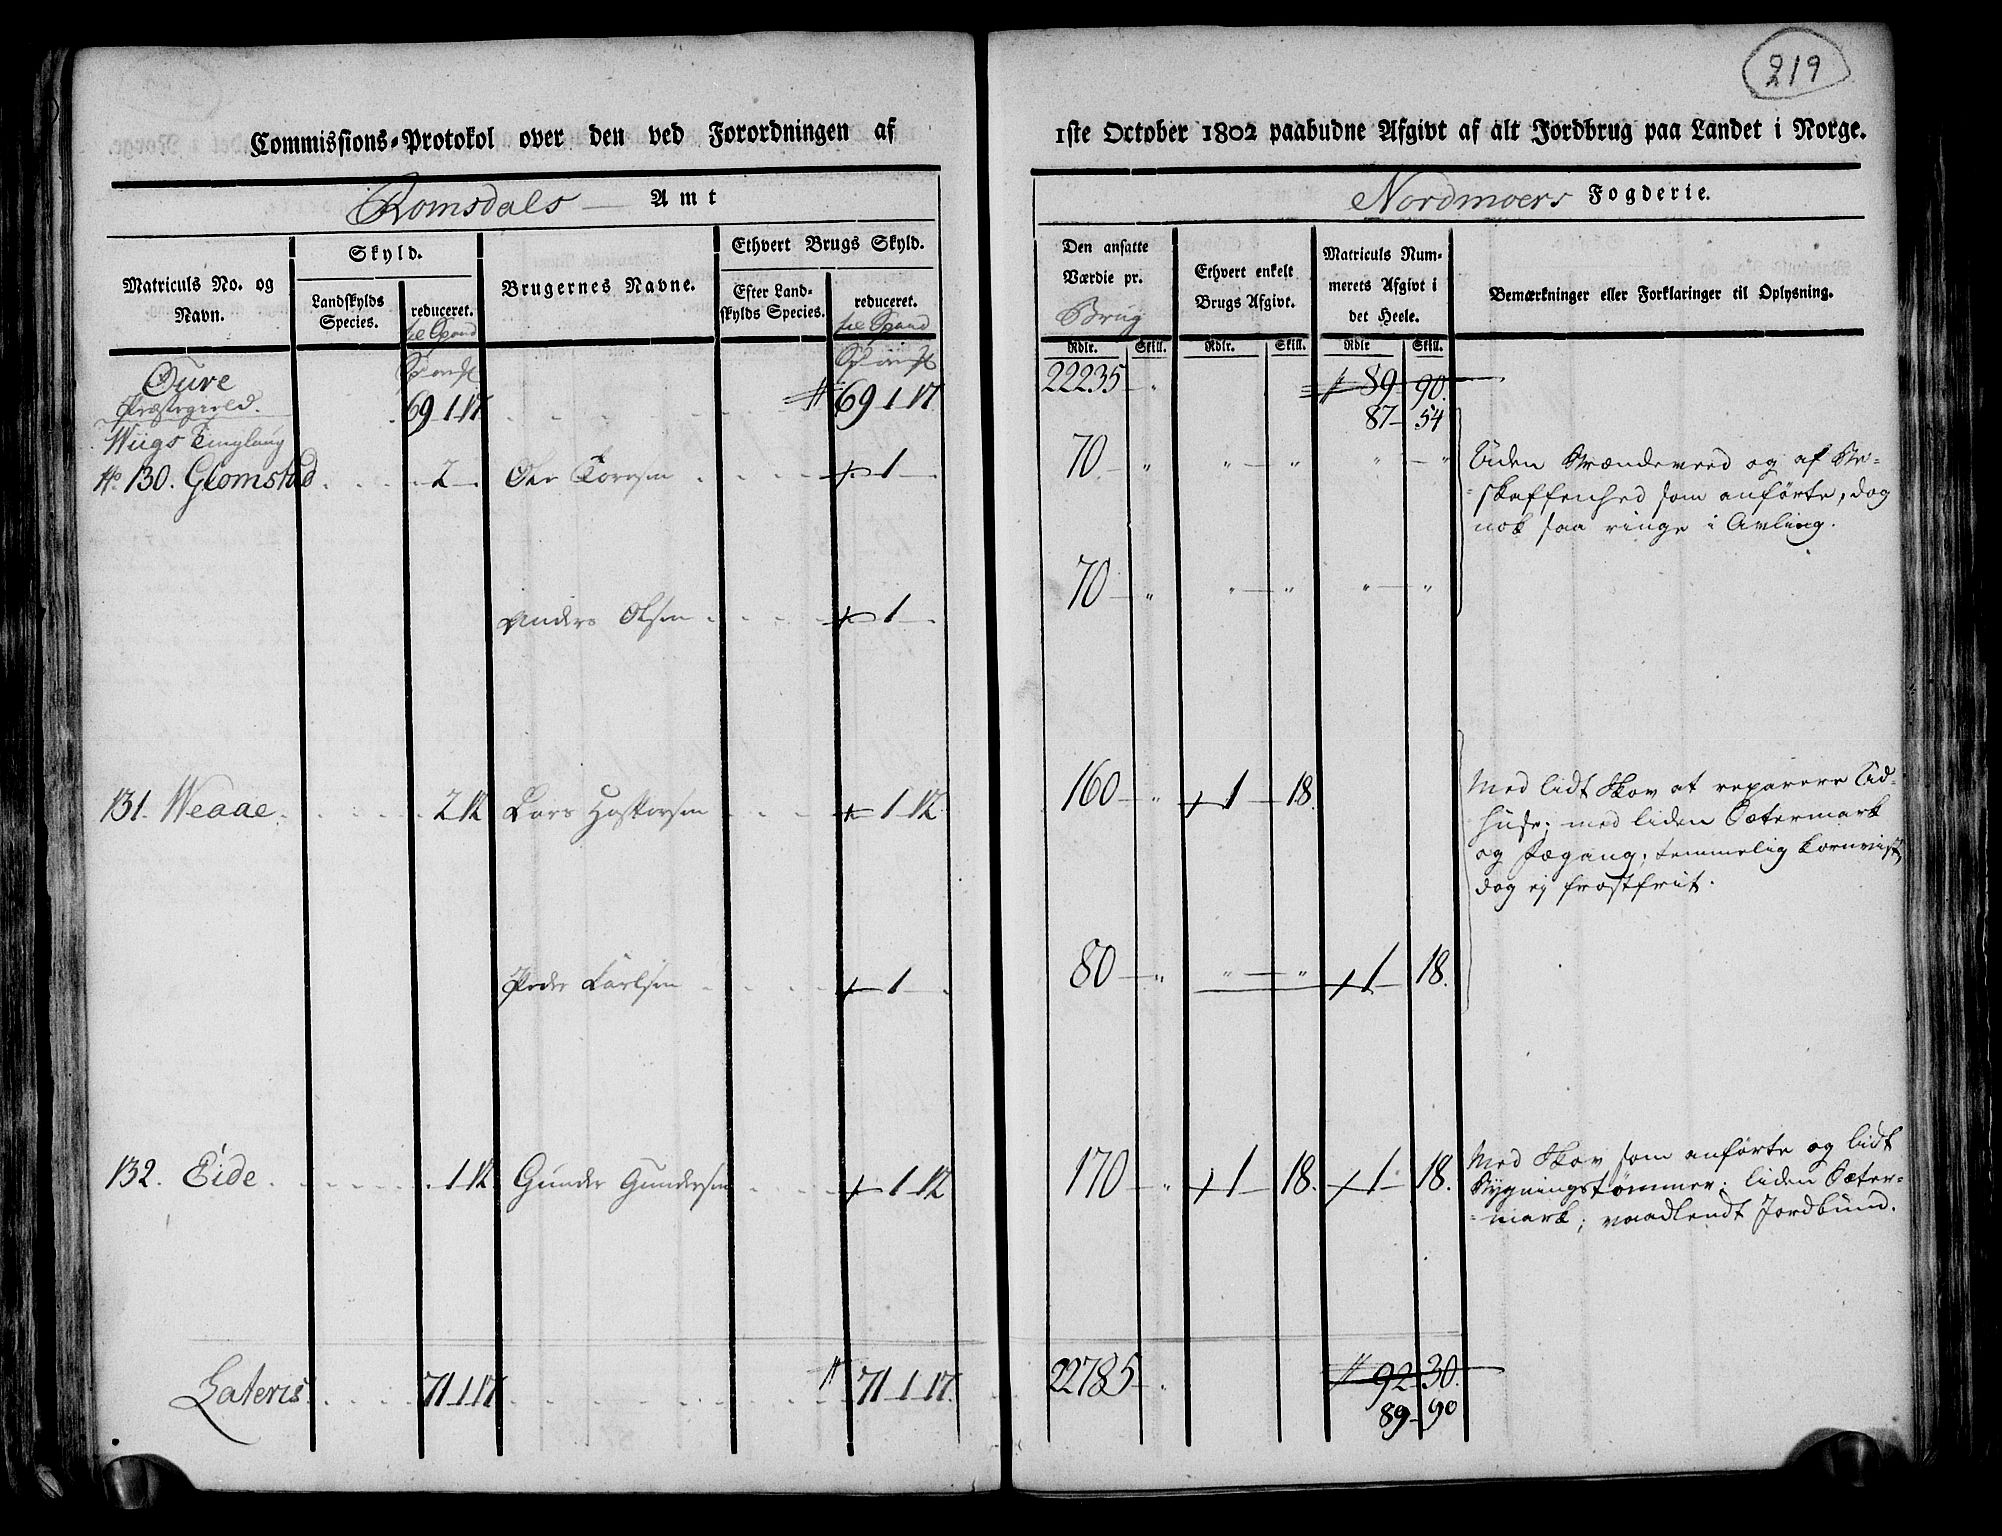 219
Commissions-Protokol over den ved Forordningen af 1ste October 1802 paabudne Afgivt af alt Jordbrug paa Landet i Norge.
Romsdals Amt
Nordmoers Fogderie.
Matriculs No. og Navn.
Skyld.
Landskylds Species.
reduceret. til Spand
Brugernes Navne.
Ethvert Brugs Skyld.
Efter Landskylds Species.
reduceret. til Spand
Den ansatte Værdie pr. Brug
Ethvert enkelt Brugs Afgivt.
Matriculs Nummerets Afgivt i det Heele.
Bemærkninger eller Forklaringer til Oplysning.
Rdlr. Skill. Rdlr. Skill. Rdlr Skill.
Øure 22235 " 89 90.
Præstegield. 69 1 17 69 1 17 87 54
Wiigs Tinglaug
No 130. Glomstad 2 Ole Toresen 1 70 " " " " "
Uden Brændeveed og af Be-
skaffenhed som anførte, dog
nok saa ringe i Avling.
Anders Olsen 1 70 " " " " "
131. Weaae 2 12 Lars 1 12 160 " 1 18.
Med lidt Skov at reparere Ud-
huse; med liden Sætermark
og Fægang; temmelig kornvist,
dog ej frostfrit.
Peder Carlsen 1 80 " " " 1 18.
132. Eide 1 12 Gunder Gundersen 1 12 170 " 1 18. 1 18.
Med Skov som anførte og lidt
Bygningstømmer; liden Sæter-
mark; vaadlendt Jordbund.
Lateris 71 1 17 71 1 17. 22785 " 92 30.
89 90